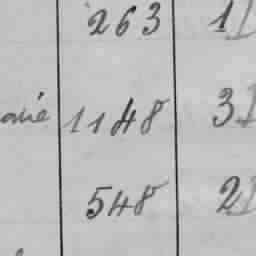 263 1
1148 3
548 2